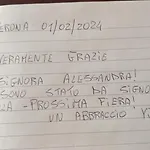 VERONA 01/02/2024
VERAMENTE GRAZIE
SIGNORA ALESSANDRA!
SONO STATO DA SIGNO
LA PROSSIMA FIERA!
UN ABBRACCIO